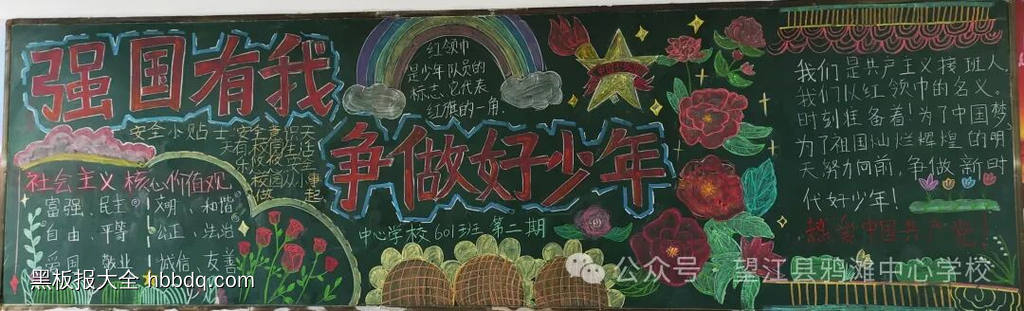 强国有我
争做好少年
中心学校601班 第二期
红领巾
是少年队员的
标志、它代表
红旗的一角.
安全小贴士
社会主义核心价值观
富强、民主 文明、和谐
自由、平等 公正、法治
爱国 敬业 诚信 友善
我们是共产主义接班人,
我们以红领巾的名义.
时刻准备着!为了中国梦
为了祖国灿烂辉煌的明
天努力向前,争做新时
代好少年!
热爱中国共产党!
黑板报大全.hbbdq.com
公众号 望江县鸦滩中心学校